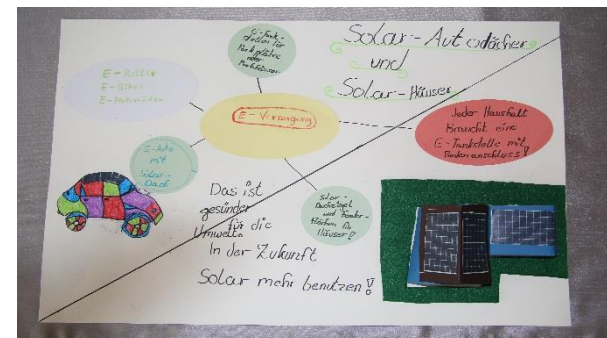 Solar-Autodächer
und
Solar-Häuser
E-Tank-
stellen für
Parkplätze
oder
Parkhäuser
E-Roller
E-Bikes
E-Motorräder
E-Versorgung
Jeder Haushalt
braucht eine
E-Tankstelle mit
Bodenanschluss!
E-Auto
mit
Solar-
Dach
Solar-
Dachziegel
und Fenster-
flächen für
Häuser!
Das ist
gesünder
für die
Umwelt.
In der Zukunft
Solar mehr benutzen!